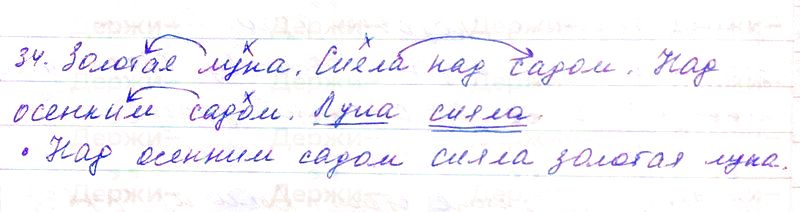 34. Золотая луна. Сияла над садом. Над
осенним садом. Луна сияла.
• Над осенним садом сияла золотая луна.